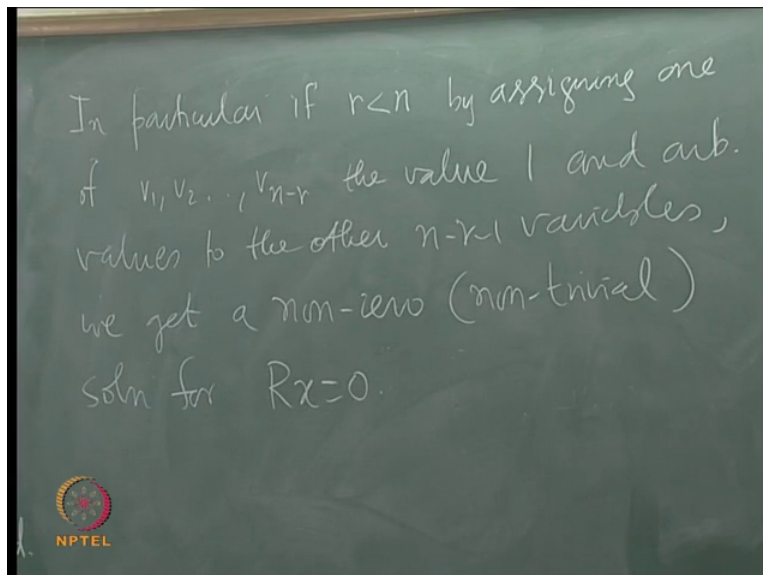 In particular if r<n by assigning one
of v₁, v₂ .., vₙ₋ᵣ the value 1 and arb.
values to the other n-r-1 variables,
we get a non-zero (non-trivial)
soln for Rx=0.
d.
NPTEL